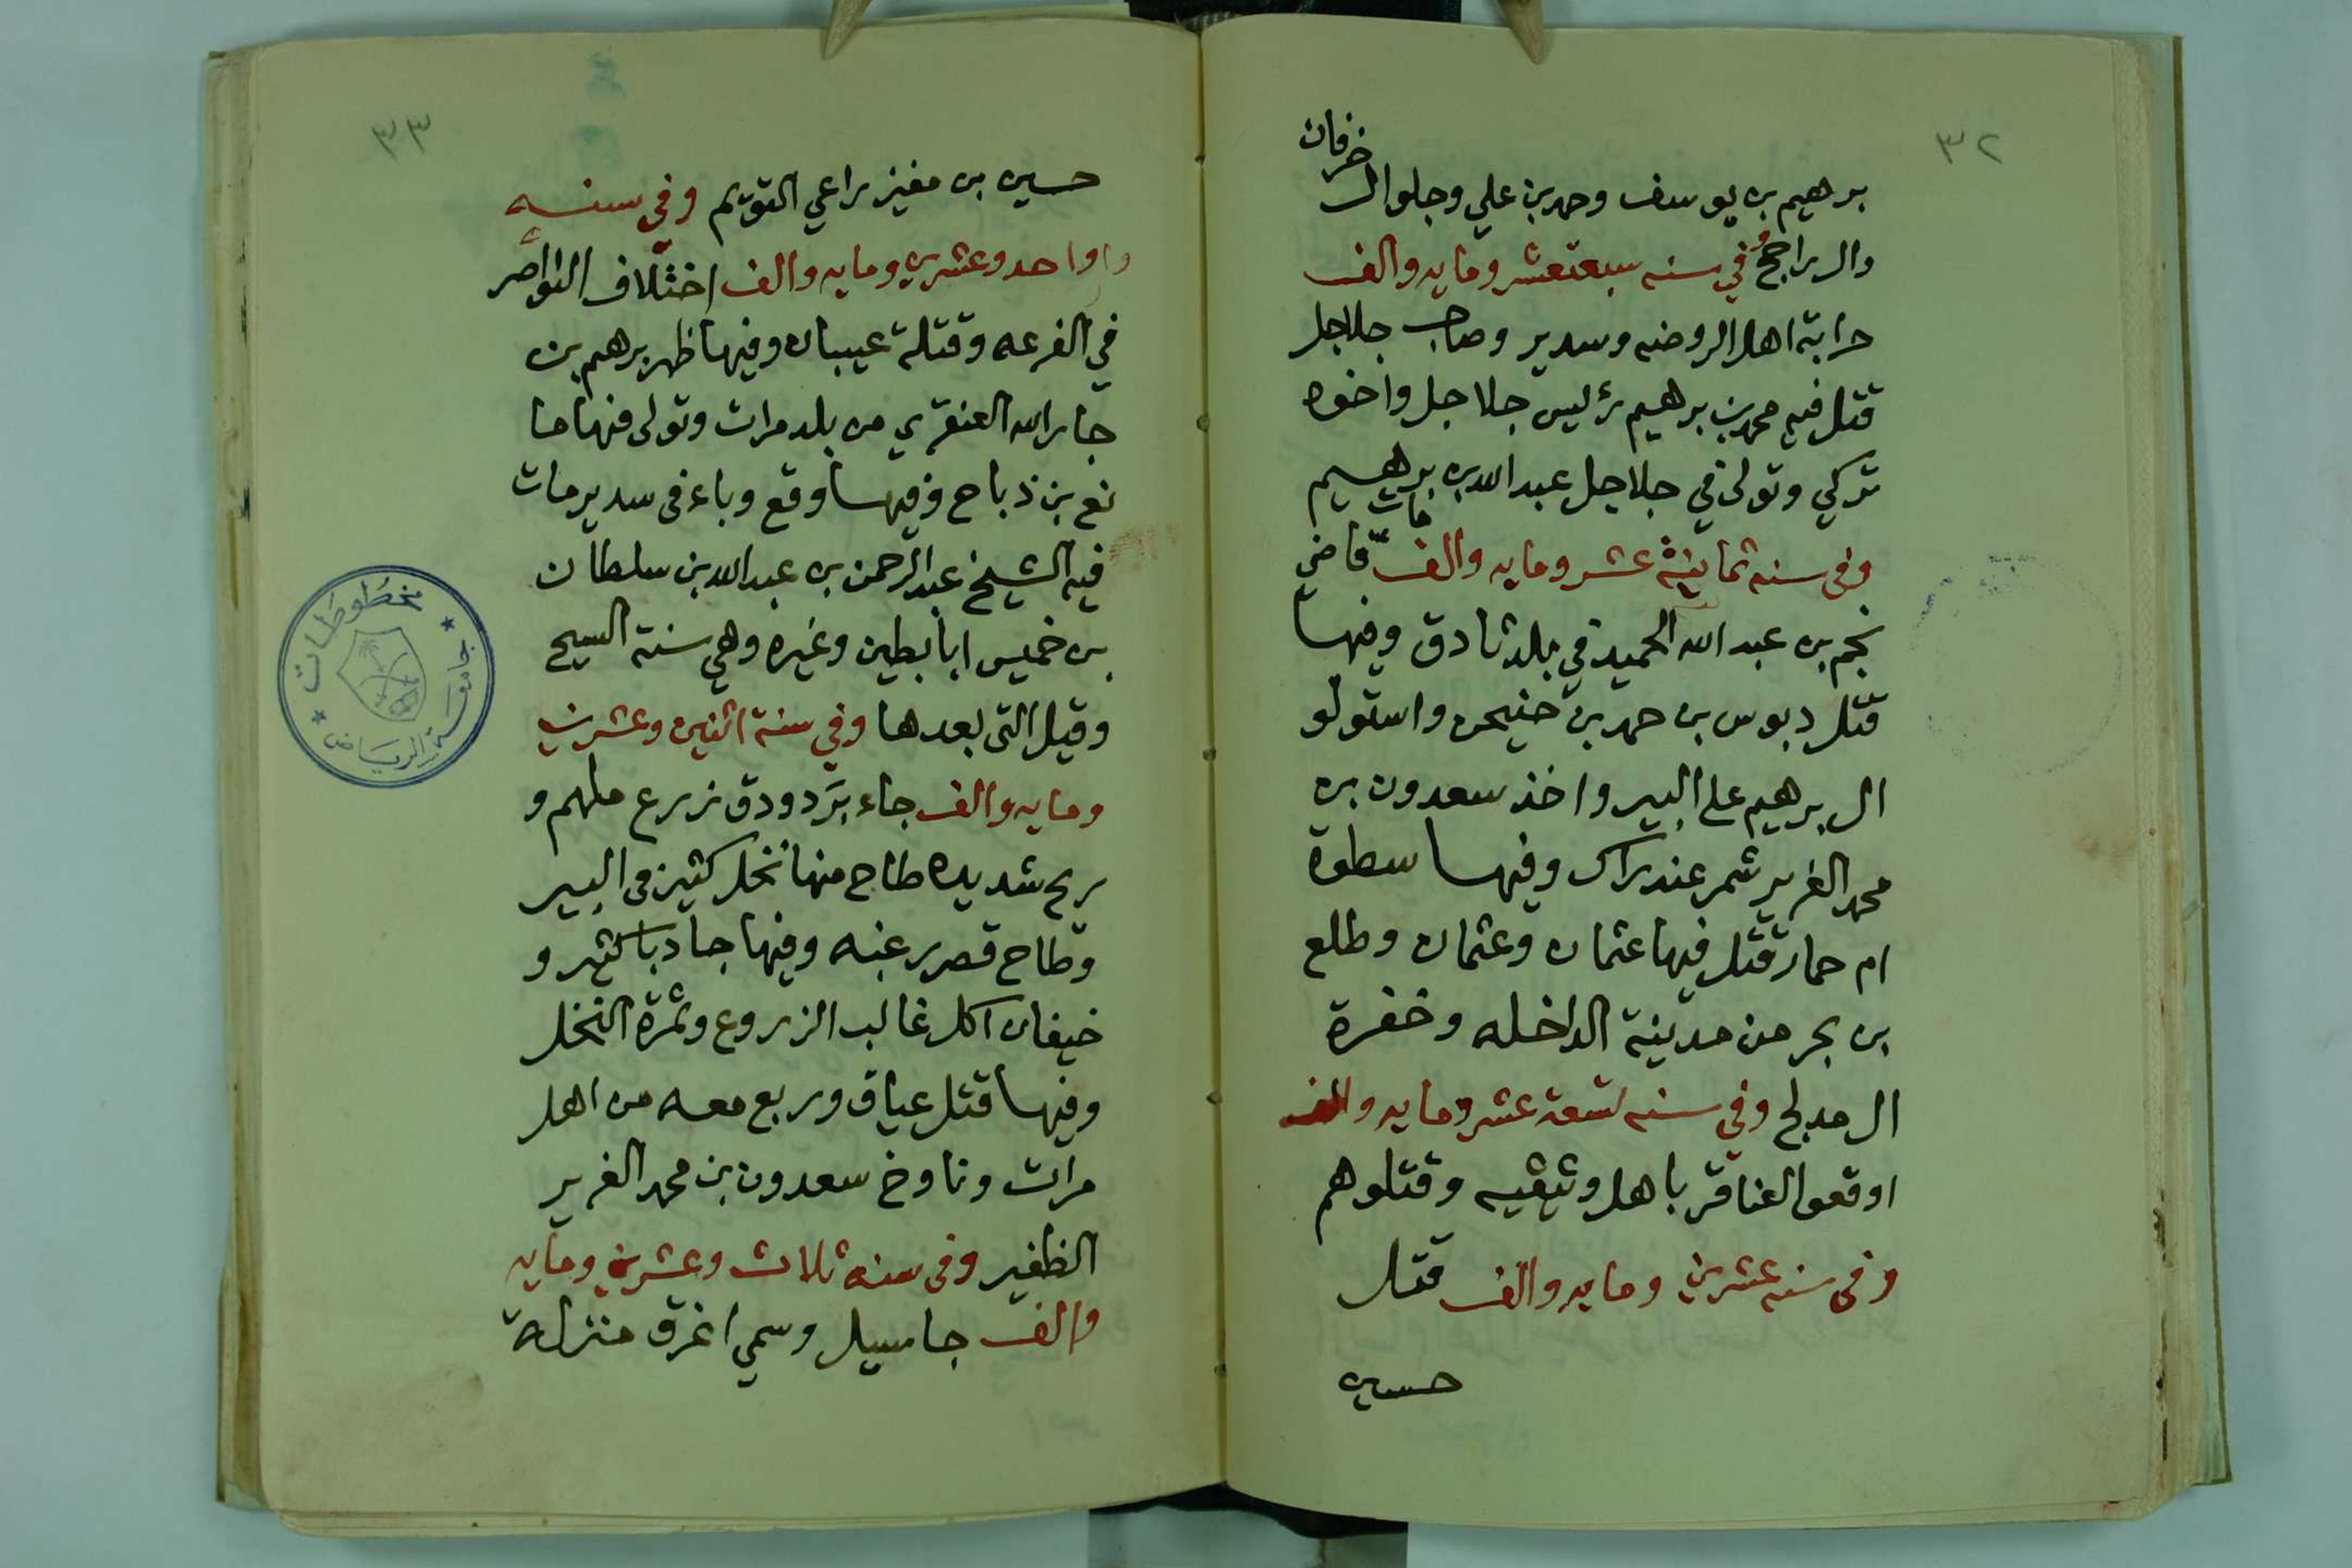 ٣٢
خرفان
برهيم بن يوسف وحمد بن علي وجلو ال
وال راجح وفي سنه سبعة عشر ومايه والف
حرابة اهل الروضه وسدير وصاحب جلاجل
قتل فيه محمد بن برهيم رئيس جلاجل واخوه
تركي وتولى في جلاجل عبدالله بن برهيم
وفي سنه ثمانية عشر ومايه والف مات قاضي
نجم بن عبد الله الحميد في بلد ثادق وفيها
قتل دبوس بن حمد بن حنيحن واستولو
ال برهيم على البير واخذ سعدون بن
محمد الغرير شمر عند راك وفيها سطوة
ام حمار قتل فيها عثمان وعثمان وطلع
بن بحر من مدينة الداخله وخفرة
ال مدلج وفي سنه تسعة عشر ومايه والف
اوقعوا العناقر باهل وثيثيه وقتلوهم
وفي سنه عشرين ومايه والف قتل
حسين
٣٣
حسين بن مفيز راعي التويم وفي سنه
واواحد وعشرين ومايه والف اختلاف النواصر
في الفرعه وقتلة عيبان وفيها ظهر برهيم بن
جارالله العنقري من بلد مرات وتولى فيها ما
نع بن ذباح وفيها وقع وباء في سدير مات
فيه الشيخ عبدالرحمن بن عبدالله بن سلطان
بن خميس ابا بطين وغيره وهي سنة السيح
وقيل التي بعدها وفي سنة اثنين وعشرين
ومايه والف جاء برد ودق زرع ملهم و
ريح شديده طاح منها نخل كثير في البير
وطاح قصر رغبه وفيها جا دبا كثير و
خيفان اكل غالب الزروع وثمرة النخل
وفيها قتل عياف وربع معه من اهل
مرات وناوخ سعدون بن محمد الغرير
الظفير وفي سنه ثلاث وعشرين ومايه
والف جا سيل وسمي اغرق منزلة
مخطوطات
جامعة الرياض